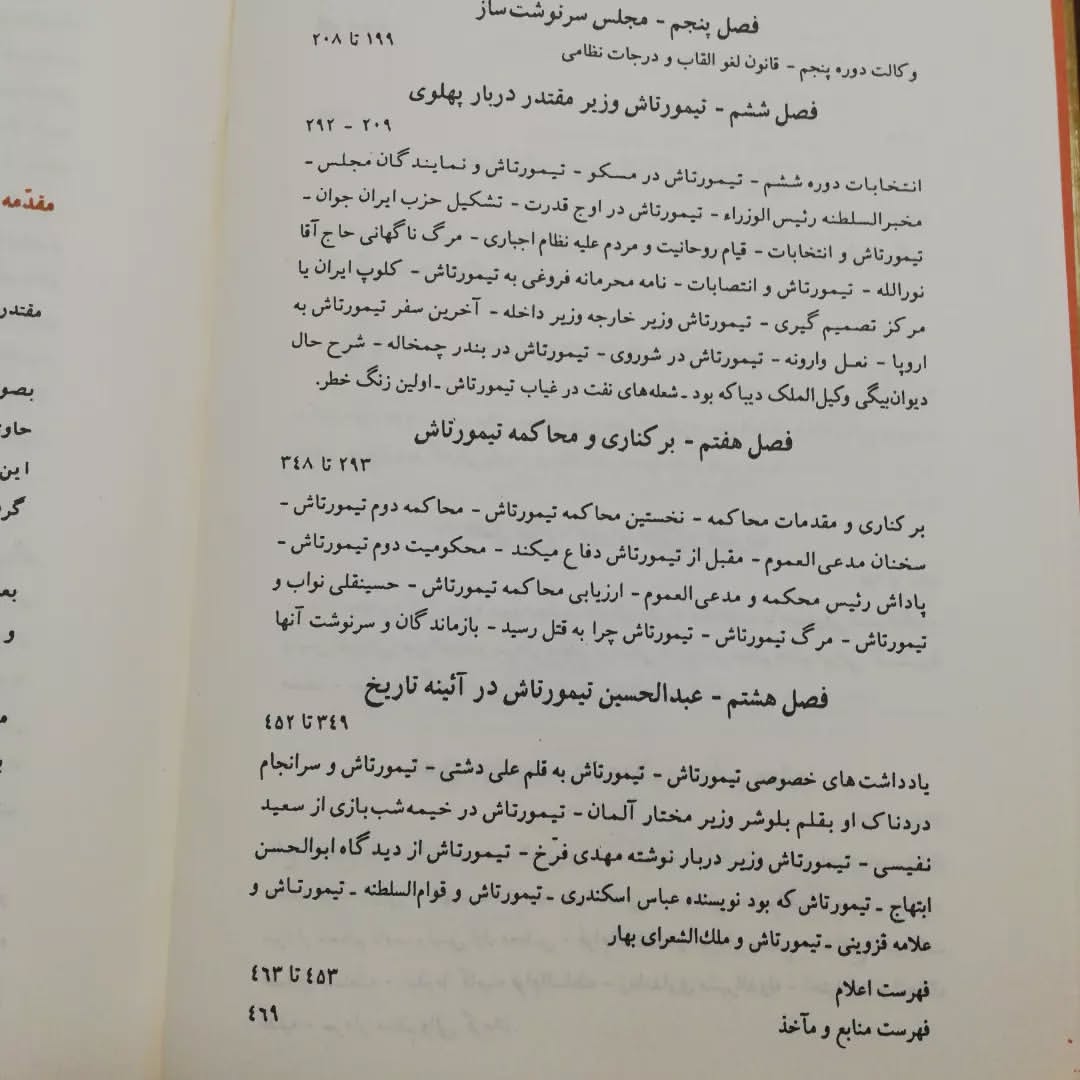 فصل پنجم - مجلس سرنوشت‌ساز
۱۹۹ تا ۲۰۸
وکالت دوره پنجم - قانون لغو القاب و درجات نظامی
فصل ششم - تیمورتاش وزیر مقتدر دربار پهلوی
۲۰۹ - ۲۹۲
انتخابات دوره ششم - تیمورتاش در مسکو - تیمورتاش و نمایندگان مجلس -
مخبرالسلطنه رئیس‌الوزراء - تیمورتاش در اوج قدرت - تشکیل حزب ایران جوان -
تیمورتاش و انتخابات - قیام روحانیت و مردم علیه نظام اجباری - مرگ ناگهانی حاج آقا
نورالله - تیمورتاش و انتصابات - نامه محرمانه فروغی به تیمورتاش - کلوپ ایران یا
مرکز تصمیم گیری - تیمورتاش وزیر خارجه وزیر داخله - آخرین سفر تیمورتاش به
اروپا - نعل وارونه - تیمورتاش در شوروی - تیمورتاش در بندر چمخاله - شرح حال
دیوان‌بیگی وکیل‌الملک دیبا که بود - شعله‌های نفت در غیاب تیمورتاش - اولین زنگ خطر.
فصل هفتم - برکناری و محاکمه تیمورتاش
۲۹۳ تا ۳۴۸
برکناری و مقدمات محاکمه - نخستین محاکمه تیمورتاش - محاکمه دوم تیمورتاش -
سخنان مدعی‌العموم - مقبل از تیمورتاش دفاع میکند - محکومیت دوم تیمورتاش -
پاداش رئیس محکمه و مدعی‌العموم - ارزیابی محاکمه تیمورتاش - حسینقلی نواب و
تیمورتاش - مرگ تیمورتاش - تیمورتاش چرا به قتل رسید - بازماندگان و سرنوشت آنها
فصل هشتم - عبدالحسین تیمورتاش در آئینه تاریخ
۳۴۹ تا ۴۵۲
یادداشت‌های خصوصی تیمورتاش - تیمورتاش به قلم علی دشتی - تیمورتاش و سرانجام
دردناک او بقلم بلوشر وزیر مختار آلمان - تیمورتاش در خیمه‌شب‌بازی از سعید
نفیسی - تیمورتاش وزیر دربار نوشته مهدی فرّخ - تیمورتاش از دیدگاه ابوالحسن
ابتهاج - تیمورتاش که بود نویسنده عباس اسکندری - تیمورتاش و قوام‌السلطنه - تیمورتاش و
علامه قزوینی - تیمورتاش و ملك‌الشعرای بهار
فهرست اعلام
۴۵۳ تا ۴۶۳
فهرست منابع و مآخذ
۴۶۹
مقدّمه
مقتدر